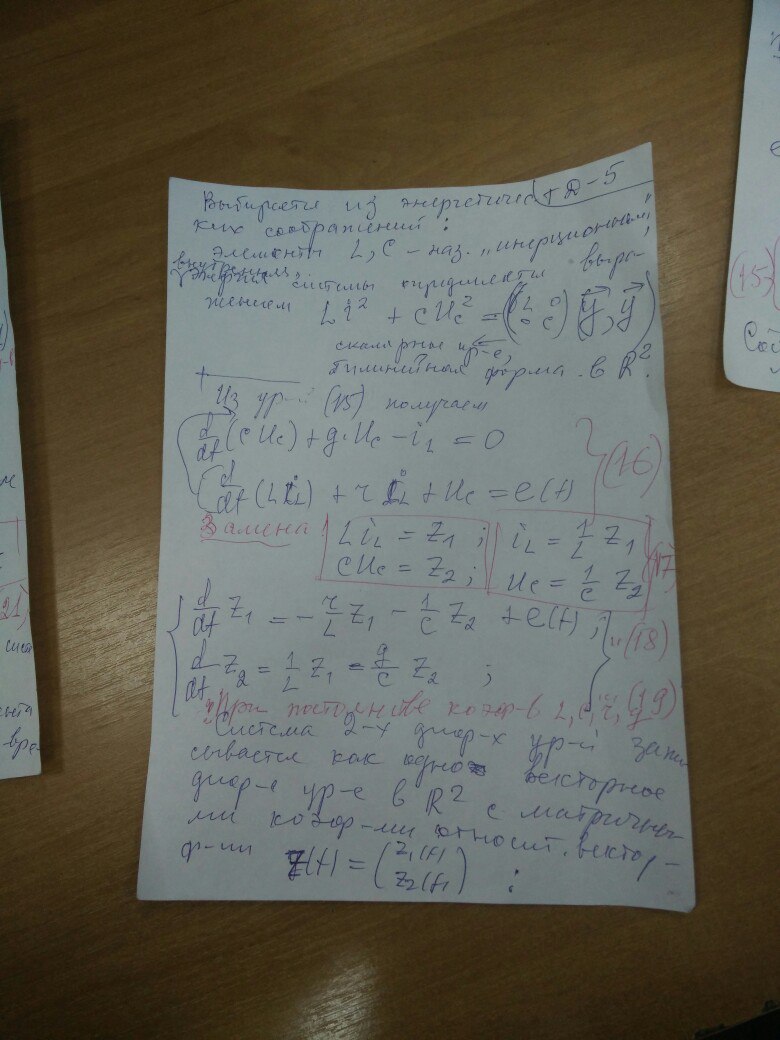 Д-5
Выбирается из энергетичес
ких соображений:
Элементы L, C - наз. "инерционными",
внутренняя
энергия системы определяется выра-
жением Li² + CUc² = (L 0 0 C) (y, y)
скалярное пр-е,
билинейная форма в R².
Из ур-й (15) получаем
d/dt (CUc) + g·Uc - iL = 0
d/dt (LiL) + r iL + Uc = e(t) } (16)
Замена! LiL = Z1 ; iL = 1/L Z1
CUc = Z2 ; Uc = 1/C Z2 (17)
d/dt Z1 = - r/L Z1 - 1/C Z2 + e(t) ;
d/dt Z2 = 1/L Z1 - g/C Z2 ; } (18)
При постоянстве коэф-в L, C, r, g (19)
Система 2-х диф-х ур-й запи
сывается как одно векторное
диф-е ур-е в R² с матричны-
ми коэф-ми относит. вектор-
ф-ии Z(t) = (Z1(t) Z2(t)) :
(15)
Сой
21)